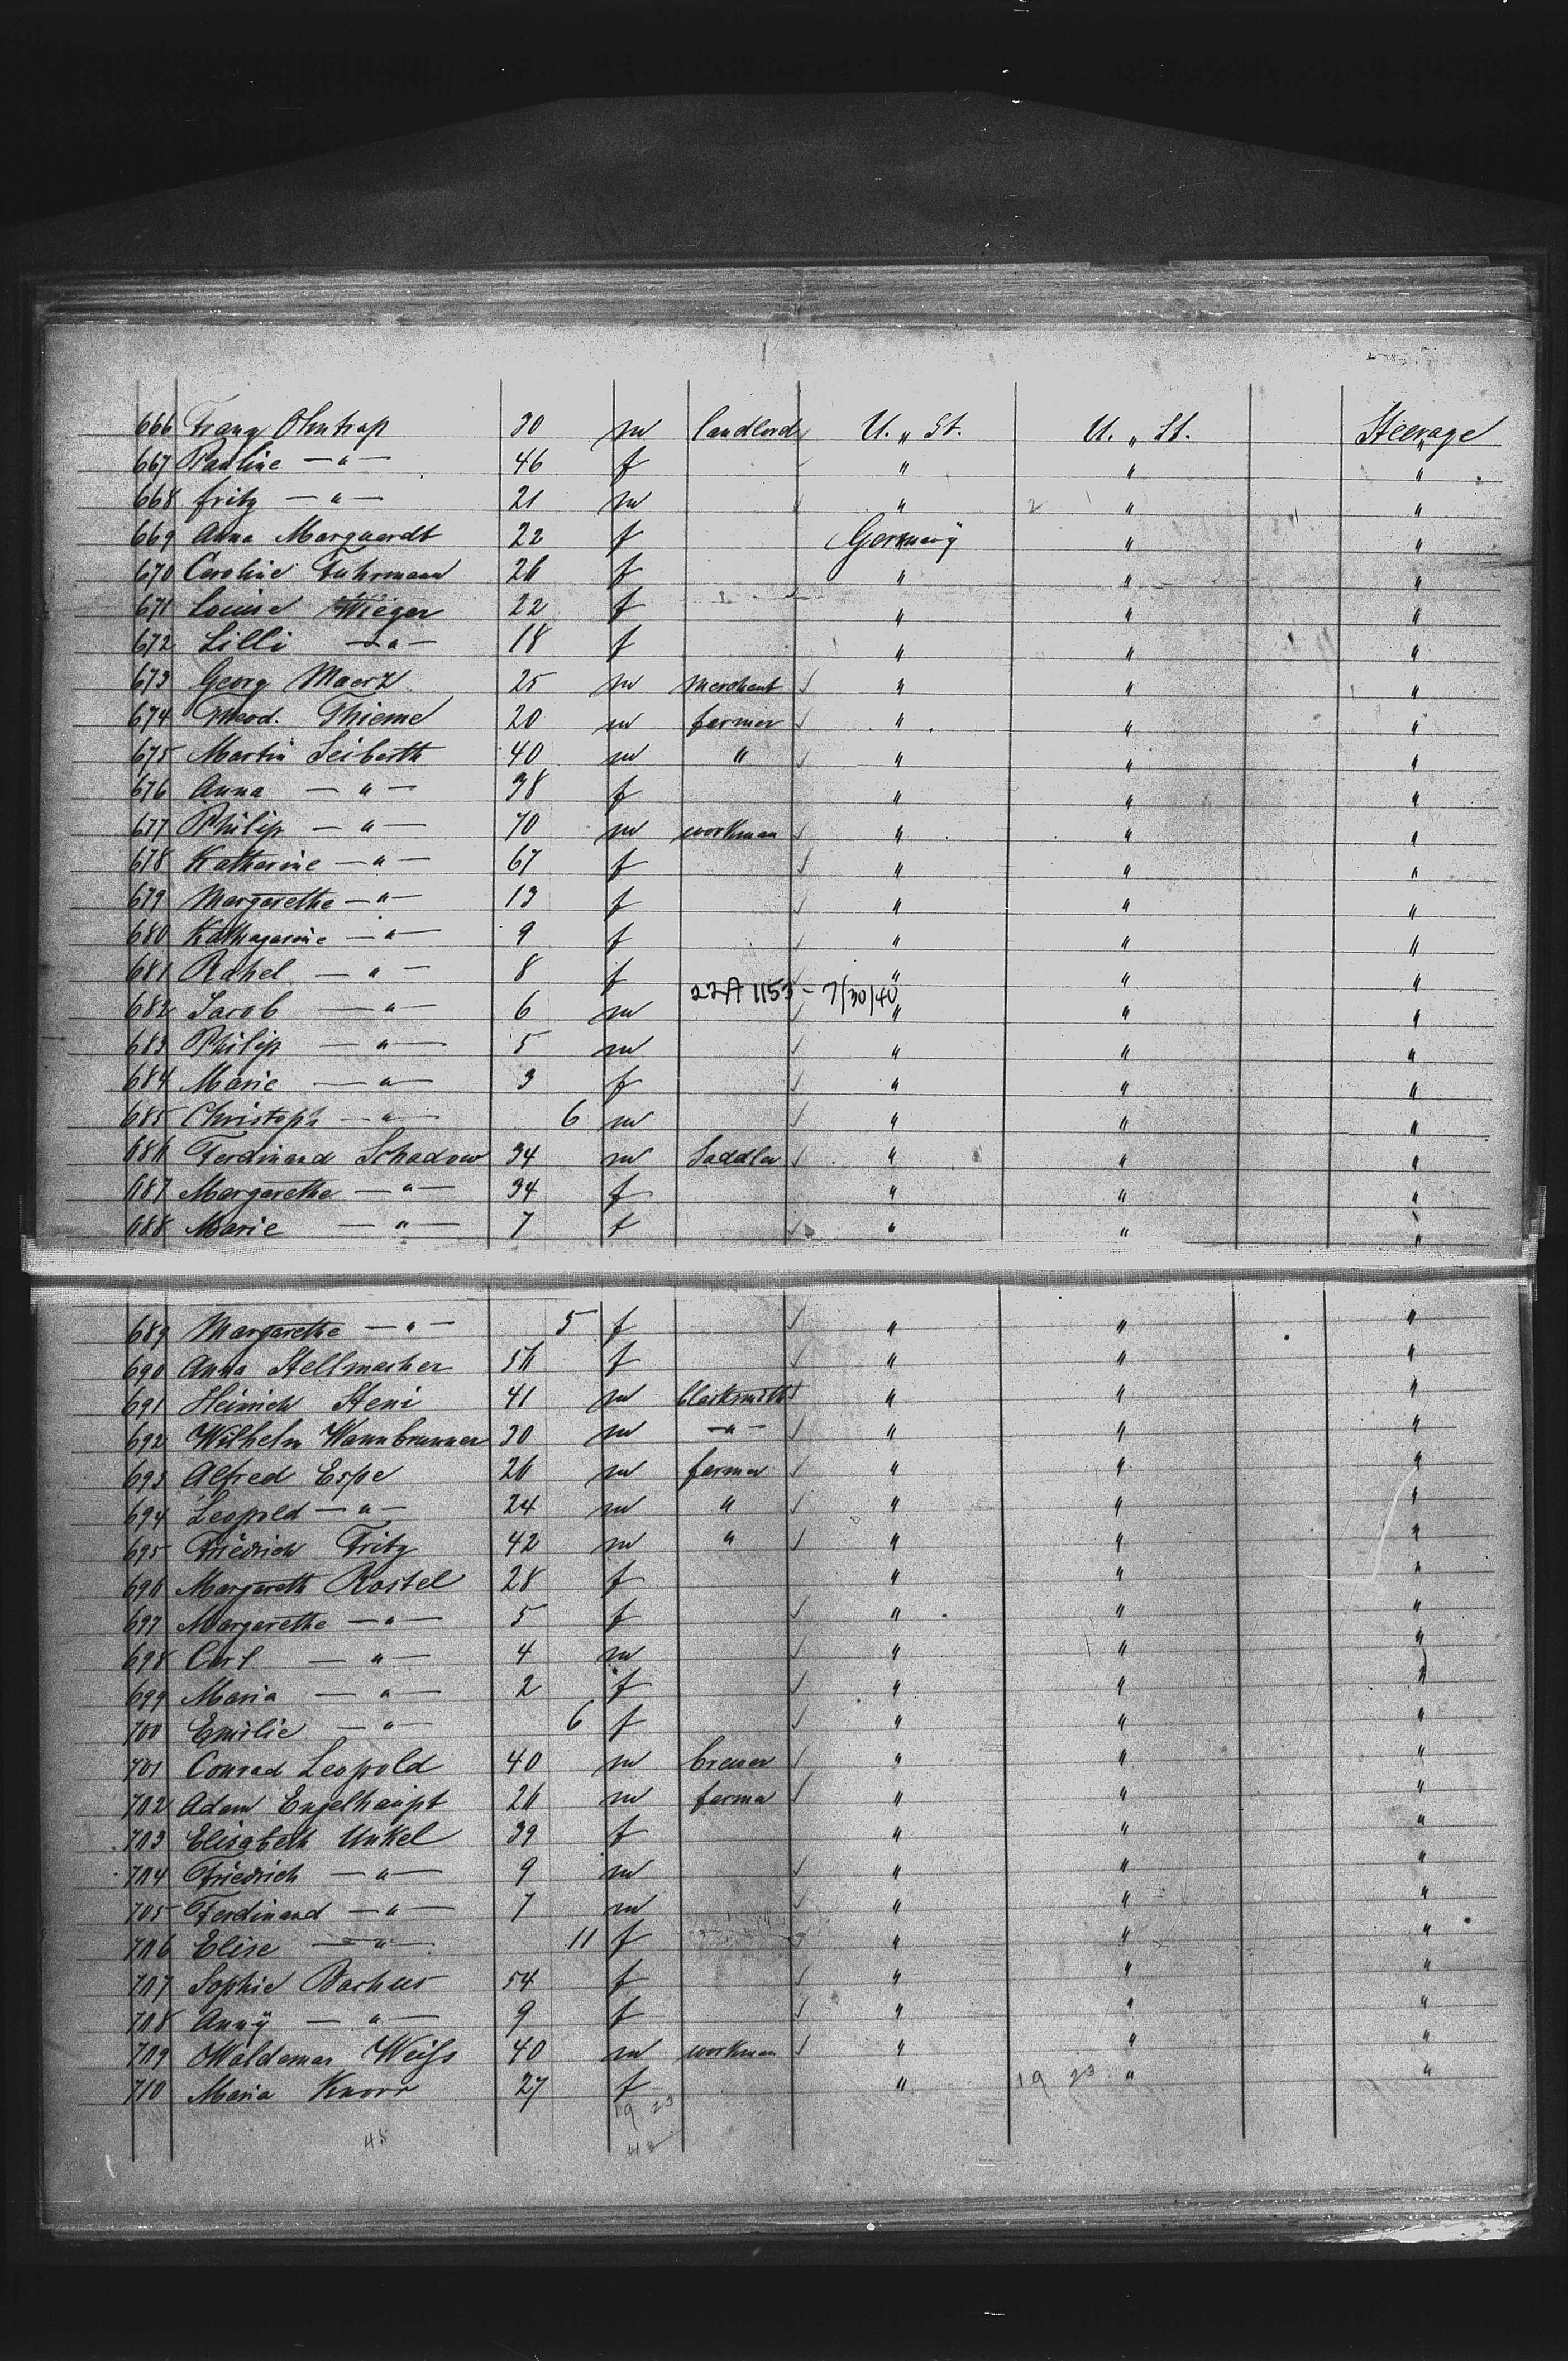 666 Franz Ohntrap 30 m landlord U. " St. U. " St. Steerage
667 Pauline —"— 46 f " " "
668 fritz —"— 21 m " " "
669 Anna Marquardt 22 f Germany " "
670 Caroline Fuhrmann 26 f " " "
671 Louise Wieger 22 f " " "
672 Lilli —"— 18 f " " "
673 Georg Maerz 25 m merchant " " "
674 Theod. Thieme 20 m farmer " " "
675 Martin Seiberth 40 m " " " "
676 Anna —"— 38 f " " "
677 Philip —"— 70 m workman " " "
678 Katharine —"— 67 f " " "
679 Margarethe —"— 13 f " " "
680 Katharine —"— 9 f " " "
681 Rahel —"— 8 f " " "
22A 1153 - 7/30/40
682 Jacob —"— 6 m " " "
683 Philip —"— 5 m " " "
684 Marie —"— 3 f " " "
685 Christoph —"— 6 m " " "
686 Ferdinand Schadow 34 m Saddler " " "
687 Margarethe —"— 34 f " " "
688 Marie —"— 7 f " " "
689 Margarethe —"— 5 f " " "
690 Anna Stellmacher 56 f " " "
691 Heinrich Steni 41 m blacksmith " " "
692 Wilhelm Wannbrunner 30 m —"— " " "
693 Alfred Espe 26 m farmer " " "
694 Leopold —"— 24 m " " " "
695 Friedrich Fritz 42 m " " " "
696 Margareth Rostel 28 f " " "
697 Margarethe —"— 5 f " " "
698 Carl —"— 4 m " " "
699 Maria —"— 2 f " " "
700 Emilie —"— 6 f " " "
701 Conrad Leopold 40 m brewer " " "
702 Adam Engelhaupt 26 m farmer " " "
703 Elisabeth Unkel 39 f " " "
704 Friedrich —"— 9 m " " "
705 Ferdinand —"— 7 m " " "
706 Elise —"— 11 f " " "
707 Sophie Bachus 54 f " " "
708 Anny —"— 9 f " " "
709 Waldemar Weiss 40 m workman " " "
710 Maria Knorr 27 f " 19 23 " "
19 23
45
42